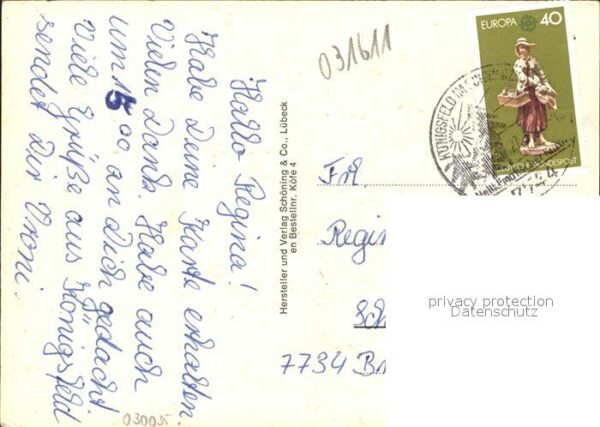 Hallo Regina!
Habe Deine Karte erhalten.
Vielen Dank. Habe auch
um 15 00 an Dich gedacht
Viele Grüße aus Königsfeld
sendet Dir Vroni
Hersteller und Verlag Schöning & Co., Lübeck
en Bestellnr. Köfe 4
031611
EUROPA 40
DEUTSCHE BUNDESPOST
KÖNIGSFELD IM
Frl.
Regin
Sch
7734 Br
privacy protection
Datenschutz
030035